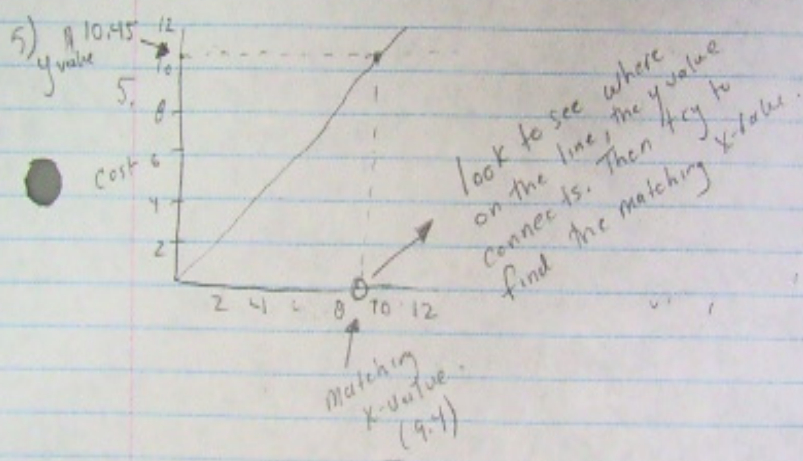 5)
$ 10.45
y value
5.
12
10
8
6
4
2
Cost
2 4 6 8 10 12
look to see where
on the line, the y value
connects. Then try to
find the matching x-value.
matching
x-value.
(9.4)